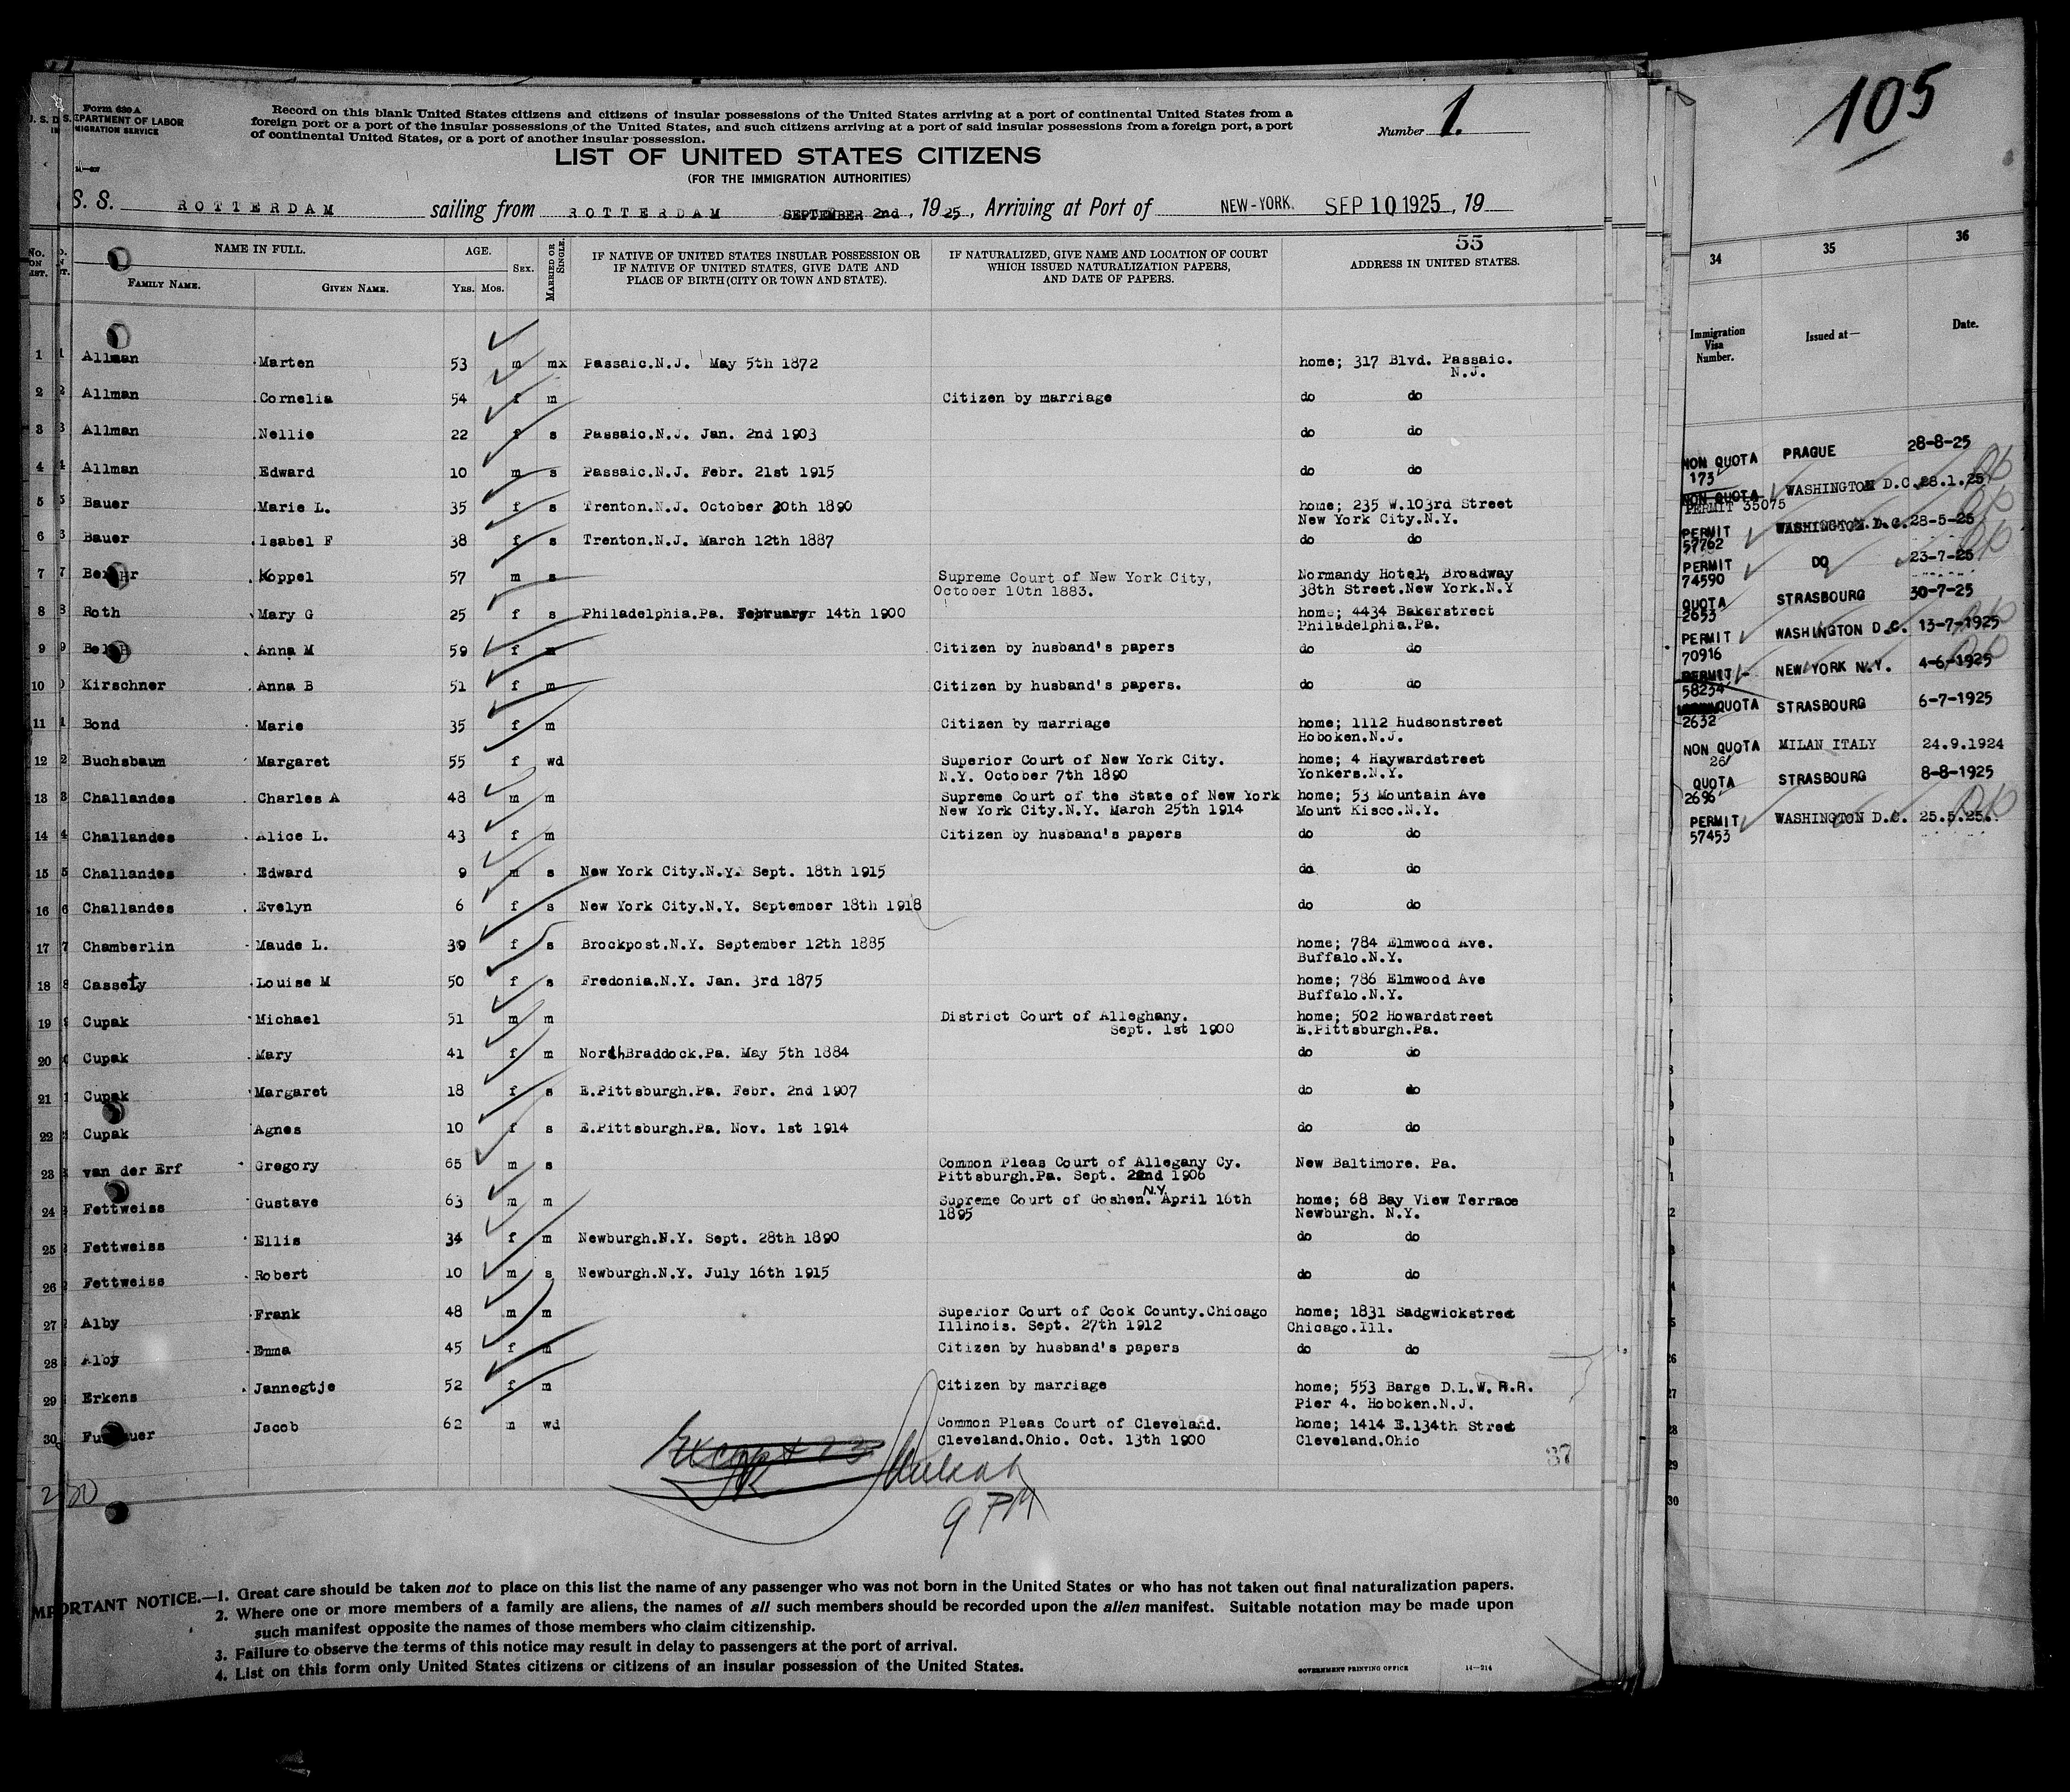 Form 630 A
U. S. DEPARTMENT OF LABOR
IMMIGRATION SERVICE
Record on this blank United States citizens and citizens of insular possessions of the United States arriving at a port of continental United States from a
foreign port or a port of the insular possessions of the United States, and such citizens arriving at a port of said insular possessions from a foreign port, a port
of continental United States, or a port of another insular possession.
Number 1.
LIST OF UNITED STATES CITIZENS
(FOR THE IMMIGRATION AUTHORITIES)
S. S. ROTTERDAM sailing from ROTTERDAM SEPTEMBER 2nd, 1925, Arriving at Port of NEW-YORK. SEP 10 1925, 19
55
No. ON LIST. NAME IN FULL. AGE. SEX. MARRIED OR SINGLE. IF NATIVE OF UNITED STATES INSULAR POSSESSION OR IF NATIVE OF UNITED STATES, GIVE DATE AND PLACE OF BIRTH (CITY OR TOWN AND STATE). IF NATURALIZED, GIVE NAME AND LOCATION OF COURT WHICH ISSUED NATURALIZATION PAPERS, AND DATE OF PAPERS. ADDRESS IN UNITED STATES.
FAMILY NAME. GIVEN NAME. YRS. MOS.
1 Allman Marten 53 m mx Passaic.N.J. May 5th 1872 home; 317 Blvd. Passaic.
N.J.
2 Allman Cornelia 54 f m Citizen by marriage do do
3 Allman Nellie 22 f s Passaic.N.J. Jan. 2nd 1903 do do
4 Allman Edward 10 m s Passaic.N.J. Febr. 21st 1915 do do
5 Bauer Marie L. 35 f s Trenton.N.J. October 20th 1890 home; 235 W.103rd Street
New York City.N.Y.
6 Bauer Isabel F 38 f s Trenton.N.J. March 12th 1887 do do
7 Koppel 57 m s Supreme Court of New York City, Normandy Hotel, Broadway
October 10th 1883. 38th Street.New York.N.Y
8 Roth Mary G 25 f s Philadelphia.Pa. February 14th 1900 home; 4434 Bakerstreet
Philadelphia.Pa.
9 Anna M 59 f m Citizen by husband's papers do do
10 Kirschner Anna B 51 f m Citizen by husband's papers. do do
11 Bond Marie 35 f m Citizen by marriage home; 1112 Hudsonstreet
Hoboken.N.J.
12 Buchsbaum Margaret 55 f wd Superior Court of New York City. home; 4 Haywardstreet
N.Y. October 7th 1890 Yonkers.N.Y.
13 Challandes Charles A 48 m m Supreme Court of the State of New York home; 53 Mountain Ave
New York City.N.Y. March 25th 1914 Mount Kisco.N.Y.
14 Challandes Alice L. 43 f m Citizen by husband's papers do do
15 Challandes Edward 9 m s New York City.N.Y. Sept. 18th 1915 do do
16 Challandes Evelyn 6 f s New York City.N.Y. September 18th 1918 do do
17 Chamberlin Maude L. 39 f s Brockpost.N.Y. September 12th 1885 home; 784 Elmwood Ave.
Buffalo.N.Y.
18 Cassety Louise M 50 f s Fredonia.N.Y. Jan. 3rd 1875 home; 786 Elmwood Ave
Buffalo.N.Y.
19 Cupak Michael 51 m m District Court of Alleghany. home; 502 Howardstreet
Sept. 1st 1900 E.Pittsburgh.Pa.
20 Cupak Mary 41 f m North Braddock.Pa. May 5th 1884 do do
21 Cupak Margaret 18 f s E.Pittsburgh.Pa. Febr. 2nd 1907 do do
22 Cupak Agnes 10 f s E.Pittsburgh.Pa. Nov. 1st 1914 do do
23 van der Erf Gregory 65 m s Common Pleas Court of Allegany Cy. New Baltimore. Pa.
Pittsburgh.Pa. Sept. 22nd 1906
24 Fettweiss Gustave 63 m m Supreme Court of Goshen. N.Y. April 16th home; 68 Bay View Terrace
1895 Newburgh. N.Y.
25 Fettweiss Ellis 34 f m Newburgh.N.Y. Sept. 28th 1890 do do
26 Fettweiss Robert 10 m s Newburgh.N.Y. July 16th 1915 do do
27 Alby Frank 48 m m Superior Court of Cook County.Chicago home; 1831 Sadgwickstreet
Illinois. Sept. 27th 1912 Chicago.Ill.
28 Alby Emma 45 f m Citizen by husband's papers do do
29 Erkens Jannegtje 52 f m Citizen by marriage home; 553 Barge D.L.W.R.R.
Pier 4. Hoboken.N.J.
30 Jacob 62 m wd Common Pleas Court of Cleveland. home; 1414 E.134th Street
Cleveland.Ohio. Oct. 13th 1900 Cleveland.Ohio
37
9 PM
IMPORTANT NOTICE.—1. Great care should be taken not to place on this list the name of any passenger who was not born in the United States or who has not taken out final naturalization papers.
2. Where one or more members of a family are aliens, the names of all such members should be recorded upon the alien manifest. Suitable notation may be made upon
such manifest opposite the names of those members who claim citizenship.
3. Failure to observe the terms of this notice may result in delay to passengers at the port of arrival.
4. List on this form only United States citizens or citizens of an insular possession of the United States.
GOVERNMENT PRINTING OFFICE 14—214
105
34 35 36
Immigration Visa Number. Issued at— Date.
NON QUOTA PRAGUE 28-8-25
173
NON QUOTA WASHINGTON D.C. 28.1.25
PERMIT 35075
PERMIT WASHINGTON.D.C. 28-5-25
57762
PERMIT DO 23-7-25
74590
QUOTA STRASBOURG 30-7-25
2653
PERMIT WASHINGTON D.C. 13-7-1925
70916
PERMIT NEW YORK N.Y. 4-6-1925
58234
QUOTA STRASBOURG 6-7-1925
2632
NON QUOTA MILAN ITALY 24.9.1924
26
QUOTA STRASBOURG 8-8-1925
2696
PERMIT WASHINGTON D.C. 25.5.25.
57453